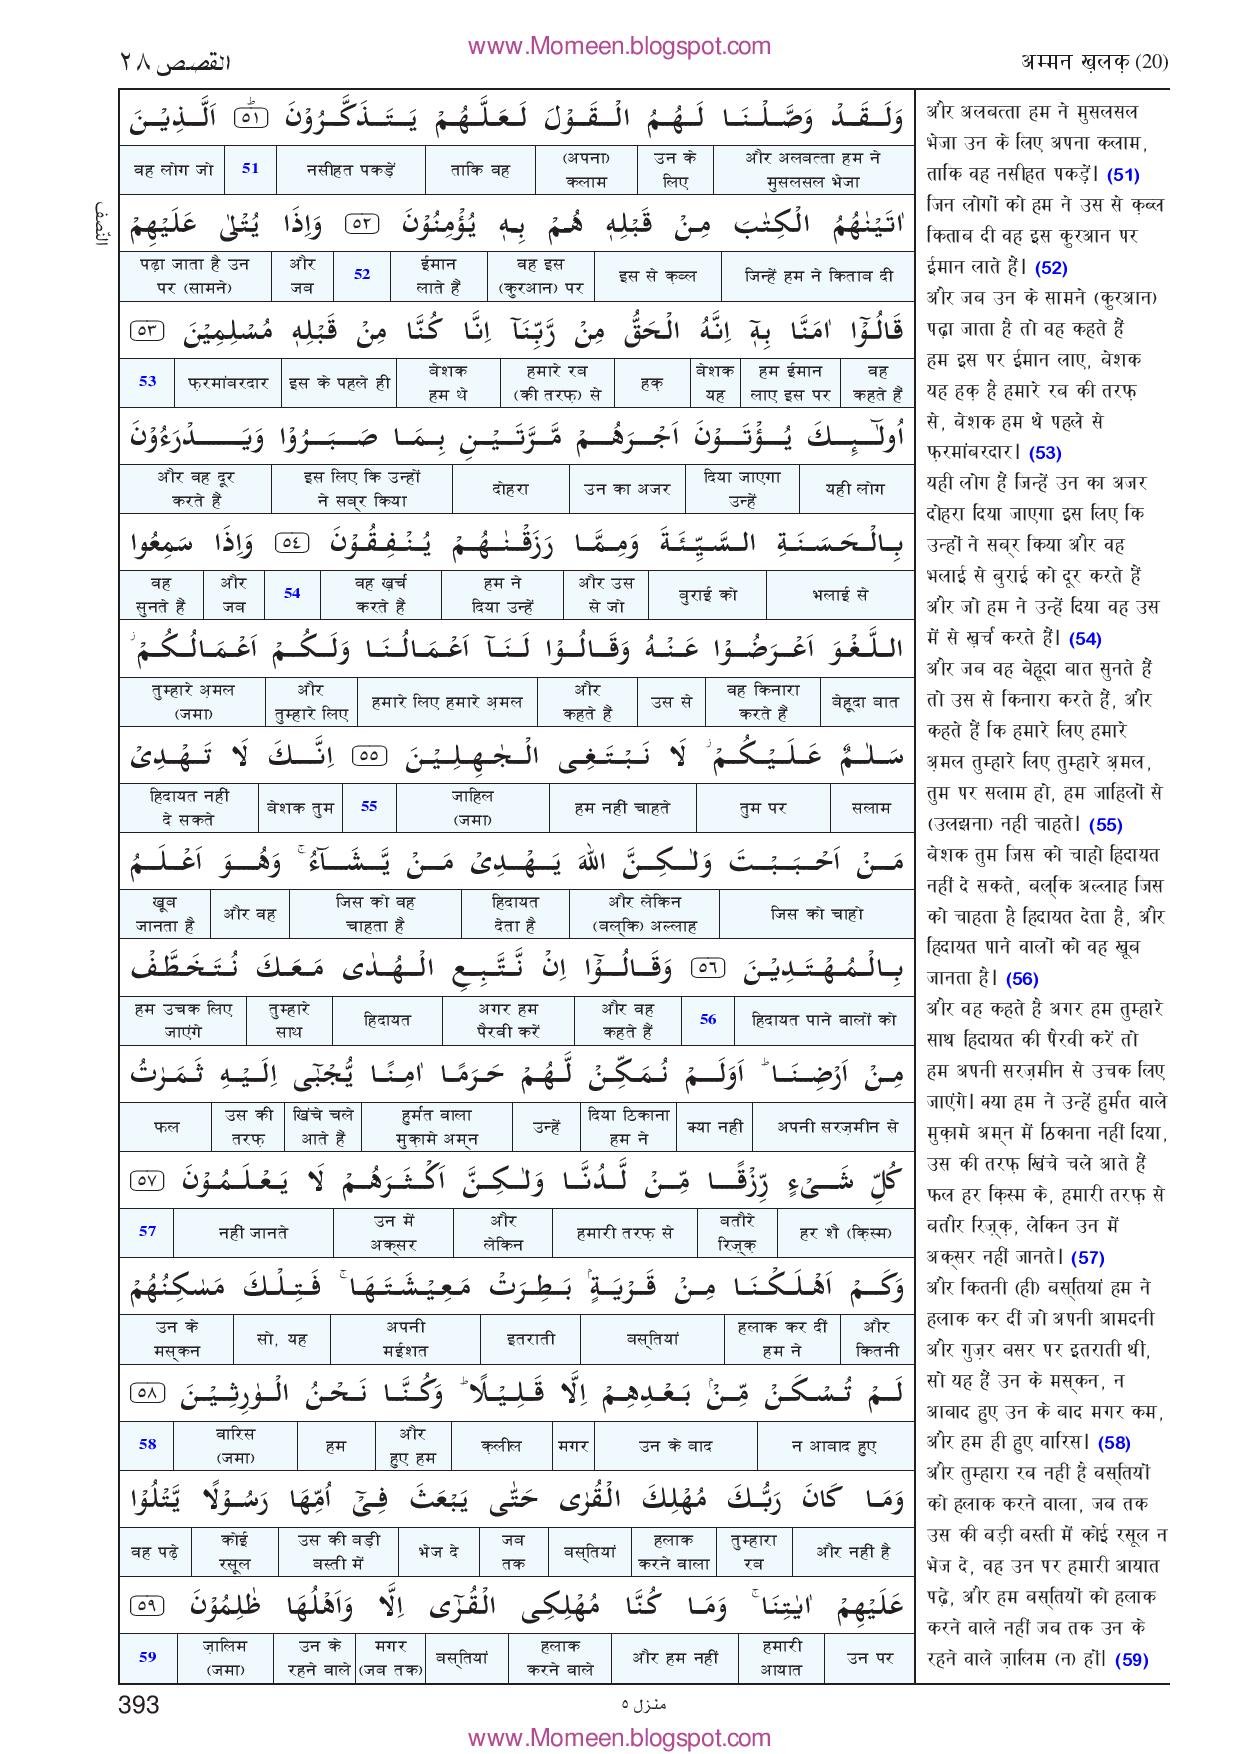 www.Momeen.blogspot.com
القصص ٢٨
अम्मन ख़लक़ (20)
وَلَقَدْ وَصَّلْنَا لَهُمُ الْقَوْلَ لَعَلَّهُمْ يَتَذَكَّرُوْنَ ؕ ٥١ اَلَّذِيْنَ
और अलबत्ता हम ने मुसलसल भेजा
उन के लिए
(अपना) कलाम
ताकि वह
नसीहत पकड़ें
51
वह लोग जो
النّصف
اٰتَيْنٰهُمُ الْكِتٰبَ مِنْ قَبْلِهٖ هُمْ بِهٖ يُؤْمِنُوْنَ ٥٢ وَاِذَا يُتْلٰى عَلَيْهِمْ
जिन्हें हम ने किताब दी
इस से क़ब्ल
वह इस (कुरआन) पर
ईमान लाते हैं
52
और जब
पढ़ा जाता है उन पर (सामने)
قَالُوْٓا اٰمَنَّا بِهٖٓ اِنَّهُ الْحَقُّ مِنْ رَّبِّنَآ اِنَّا كُنَّا مِنْ قَبْلِهٖ مُسْلِمِيْنَ ٥٣
वह कहते हैं
हम ईमान लाए इस पर
बेशक यह
हक़
हमारे रब (की तरफ़) से
बेशक हम थे
इस के पहले ही
फ़रमांबरदार
53
اُولٰٓىِٕكَ يُؤْتَوْنَ اَجْرَهُمْ مَّرَّتَيْنِ بِمَا صَبَرُوْا وَيَدْرَءُوْنَ
यही लोग
दिया जाएगा उन्हें
उन का अजर
दोहरा
इस लिए कि उन्हों ने सब्र किया
और वह दूर करते हैं
بِالْحَسَنَةِ السَّيِّئَةَ وَمِمَّا رَزَقْنٰهُمْ يُنْفِقُوْنَ ٥٤ وَاِذَا سَمِعُوا
भलाई से
बुराई को
और उस से जो
हम ने दिया उन्हें
वह ख़र्च करते हैं
54
और जब
वह सुनते हैं
اللَّغْوَ اَعْرَضُوْا عَنْهُ وَقَالُوْا لَنَآ اَعْمَالُنَا وَلَكُمْ اَعْمَالُكُمْ ؗ
बेहूदा बात
वह किनारा करते हैं
उस से
और कहते हैं
हमारे लिए हमारे अ़मल
और तुम्हारे लिए
तुम्हारे अ़मल (जमा)
سَلٰمٌ عَلَيْكُمْ ؗ لَا نَبْتَغِى الْجٰهِلِيْنَ ٥٥ اِنَّكَ لَا تَهْدِىْ
सलाम
तुम पर
हम नहीं चाहते
जाहिल (जमा)
55
बेशक तुम
हिदायत नहीं दे सकते
مَنْ اَحْبَبْتَ وَلٰكِنَّ اللّٰهَ يَهْدِىْ مَنْ يَّشَآءُ ۚ وَهُوَ اَعْلَمُ
जिस को चाहो
और लेकिन (बल्कि) अल्लाह
हिदायत देता है
जिस को वह चाहता है
और वह
खूब जानता है
بِالْمُهْتَدِيْنَ ٥٦ وَقَالُوْٓا اِنْ نَّتَّبِعِ الْهُدٰى مَعَكَ نُتَخَطَّفْ
हिदायत पाने वालों को
56
और वह कहते हैं
अगर हम पैरवी करें
हिदायत
तुम्हारे साथ
हम उचक लिए जाएंगे
مِنْ اَرْضِنَا ؕ اَوَلَمْ نُمَكِّنْ لَّهُمْ حَرَمًا اٰمِنًا يُّجْبٰٓى اِلَيْهِ ثَمَرٰتُ
अपनी सरज़मीन से
क्या नहीं
दिया ठिकाना हम ने
उन्हें
हुर्मत वाला मुक़ामे अम्न
खिंचे चले आते हैं
उस की तरफ़
फल
كُلِّ شَىْءٍ رِّزْقًا مِّنْ لَّدُنَّا وَلٰكِنَّ اَكْثَرَهُمْ لَا يَعْلَمُوْنَ ٥٧
हर शै (क़िस्म)
बतौरे रिज़्क़
हमारी तरफ़ से
और लेकिन
उन में अक्सर
नहीं जानते
57
وَكَمْ اَهْلَكْنَا مِنْ قَرْيَةٍۭ بَطِرَتْ مَعِيْشَتَهَا ۚ فَتِلْكَ مَسٰكِنُهُمْ
और कितनी
हलाक कर दीं हम ने
बस्तियां
इतराती
अपनी मईशत
सो, यह
उन के मस्कन
لَمْ تُسْكَنْ مِّنْۢ بَعْدِهِمْ اِلَّا قَلِيْلًا ؕ وَكُنَّا نَحْنُ الْوٰرِثِيْنَ ٥٨
न आबाद हुए
उन के बाद
मगर
क़लील
और हुए हम
हम
वारिस (जमा)
58
وَمَا كَانَ رَبُّكَ مُهْلِكَ الْقُرٰى حَتّٰى يَبْعَثَ فِىْٓ اُمِّهَا رَسُوْلًا يَّتْلُوْا
और नहीं है
तुम्हारा रब
हलाक करने वाला
बस्तियां
जब तक
भेज दे
उस की बड़ी बस्ती में
कोई रसूल
वह पढ़े
عَلَيْهِمْ اٰيٰتِنَا ۚ وَمَا كُنَّا مُهْلِكِى الْقُرٰٓى اِلَّا وَاَهْلُهَا ظٰلِمُوْنَ ٥٩
उन पर
हमारी आयात
और हम नहीं
हलाक करने वाले
बस्तियां
मगर (जब तक)
उन के रहने वाले
ज़ालिम (जमा)
59
और अलबत्ता हम ने मुसलसल
भेजा उन के लिए अपना कलाम,
ताकि वह नसीहत पकड़ें। (51)
जिन लोगों को हम ने उस से क़ब्ल
किताब दी वह इस कुरआन पर
ईमान लाते हैं। (52)
और जब उन के सामने (कुरआन)
पढ़ा जाता है तो वह कहते हैं
हम इस पर ईमान लाए, बेशक
यह हक़ है हमारे रब की तरफ़
से, बेशक हम थे पहले से
फ़रमांबरदार। (53)
यही लोग हैं जिन्हें उन का अजर
दोहरा दिया जाएगा इस लिए कि
उन्हों ने सब्र किया और वह
भलाई से बुराई को दूर करते हैं
और जो हम ने उन्हें दिया वह उस
में से ख़र्च करते हैं। (54)
और जब वह बेहूदा बात सुनते हैं
तो उस से किनारा करते हैं, और
कहते हैं कि हमारे लिए हमारे
अ़मल तुम्हारे लिए तुम्हारे अ़मल,
तुम पर सलाम हो, हम जाहिलों से
(उलझना) नहीं चाहते। (55)
बेशक तुम जिस को चाहो हिदायत
नहीं दे सकते, बल्कि अल्लाह जिस
को चाहता है हिदायत देता है, और
हिदायत पाने वालों को वह खूब
जानता है। (56)
और वह कहते है अगर हम तुम्हारे
साथ हिदायत की पैरवी करें तो
हम अपनी सरज़मीन से उचक लिए
जाएंगे। क्या हम ने उन्हें हुर्मत वाले
मुक़ामे अम्न में ठिकाना नहीं दिया,
उस की तरफ़ खिंचे चले आते हैं
फल हर क़िस्म के, हमारी तरफ़ से
बतौर रिज़्क़, लेकिन उन में
अक्सर नहीं जानते। (57)
और कितनी (ही) बस्तियां हम ने
हलाक कर दीं जो अपनी आमदनी
और गुज़र बसर पर इतराती थीं,
सो यह हैं उन के मस्कन, न
आबाद हुए उन के बाद मगर कम,
और हम ही हुए वारिस। (58)
और तुम्हारा रब नहीं है बस्तियों
को हलाक करने वाला, जब तक
उस की बड़ी बस्ती में कोई रसूल न
भेज दे, वह उन पर हमारी आयात
पढ़े, और हम बस्तियों को हलाक
करने वाले नहीं जब तक उन के
रहने वाले ज़ालिम (न) हों। (59)
393
منزل ٥
www.Momeen.blogspot.com